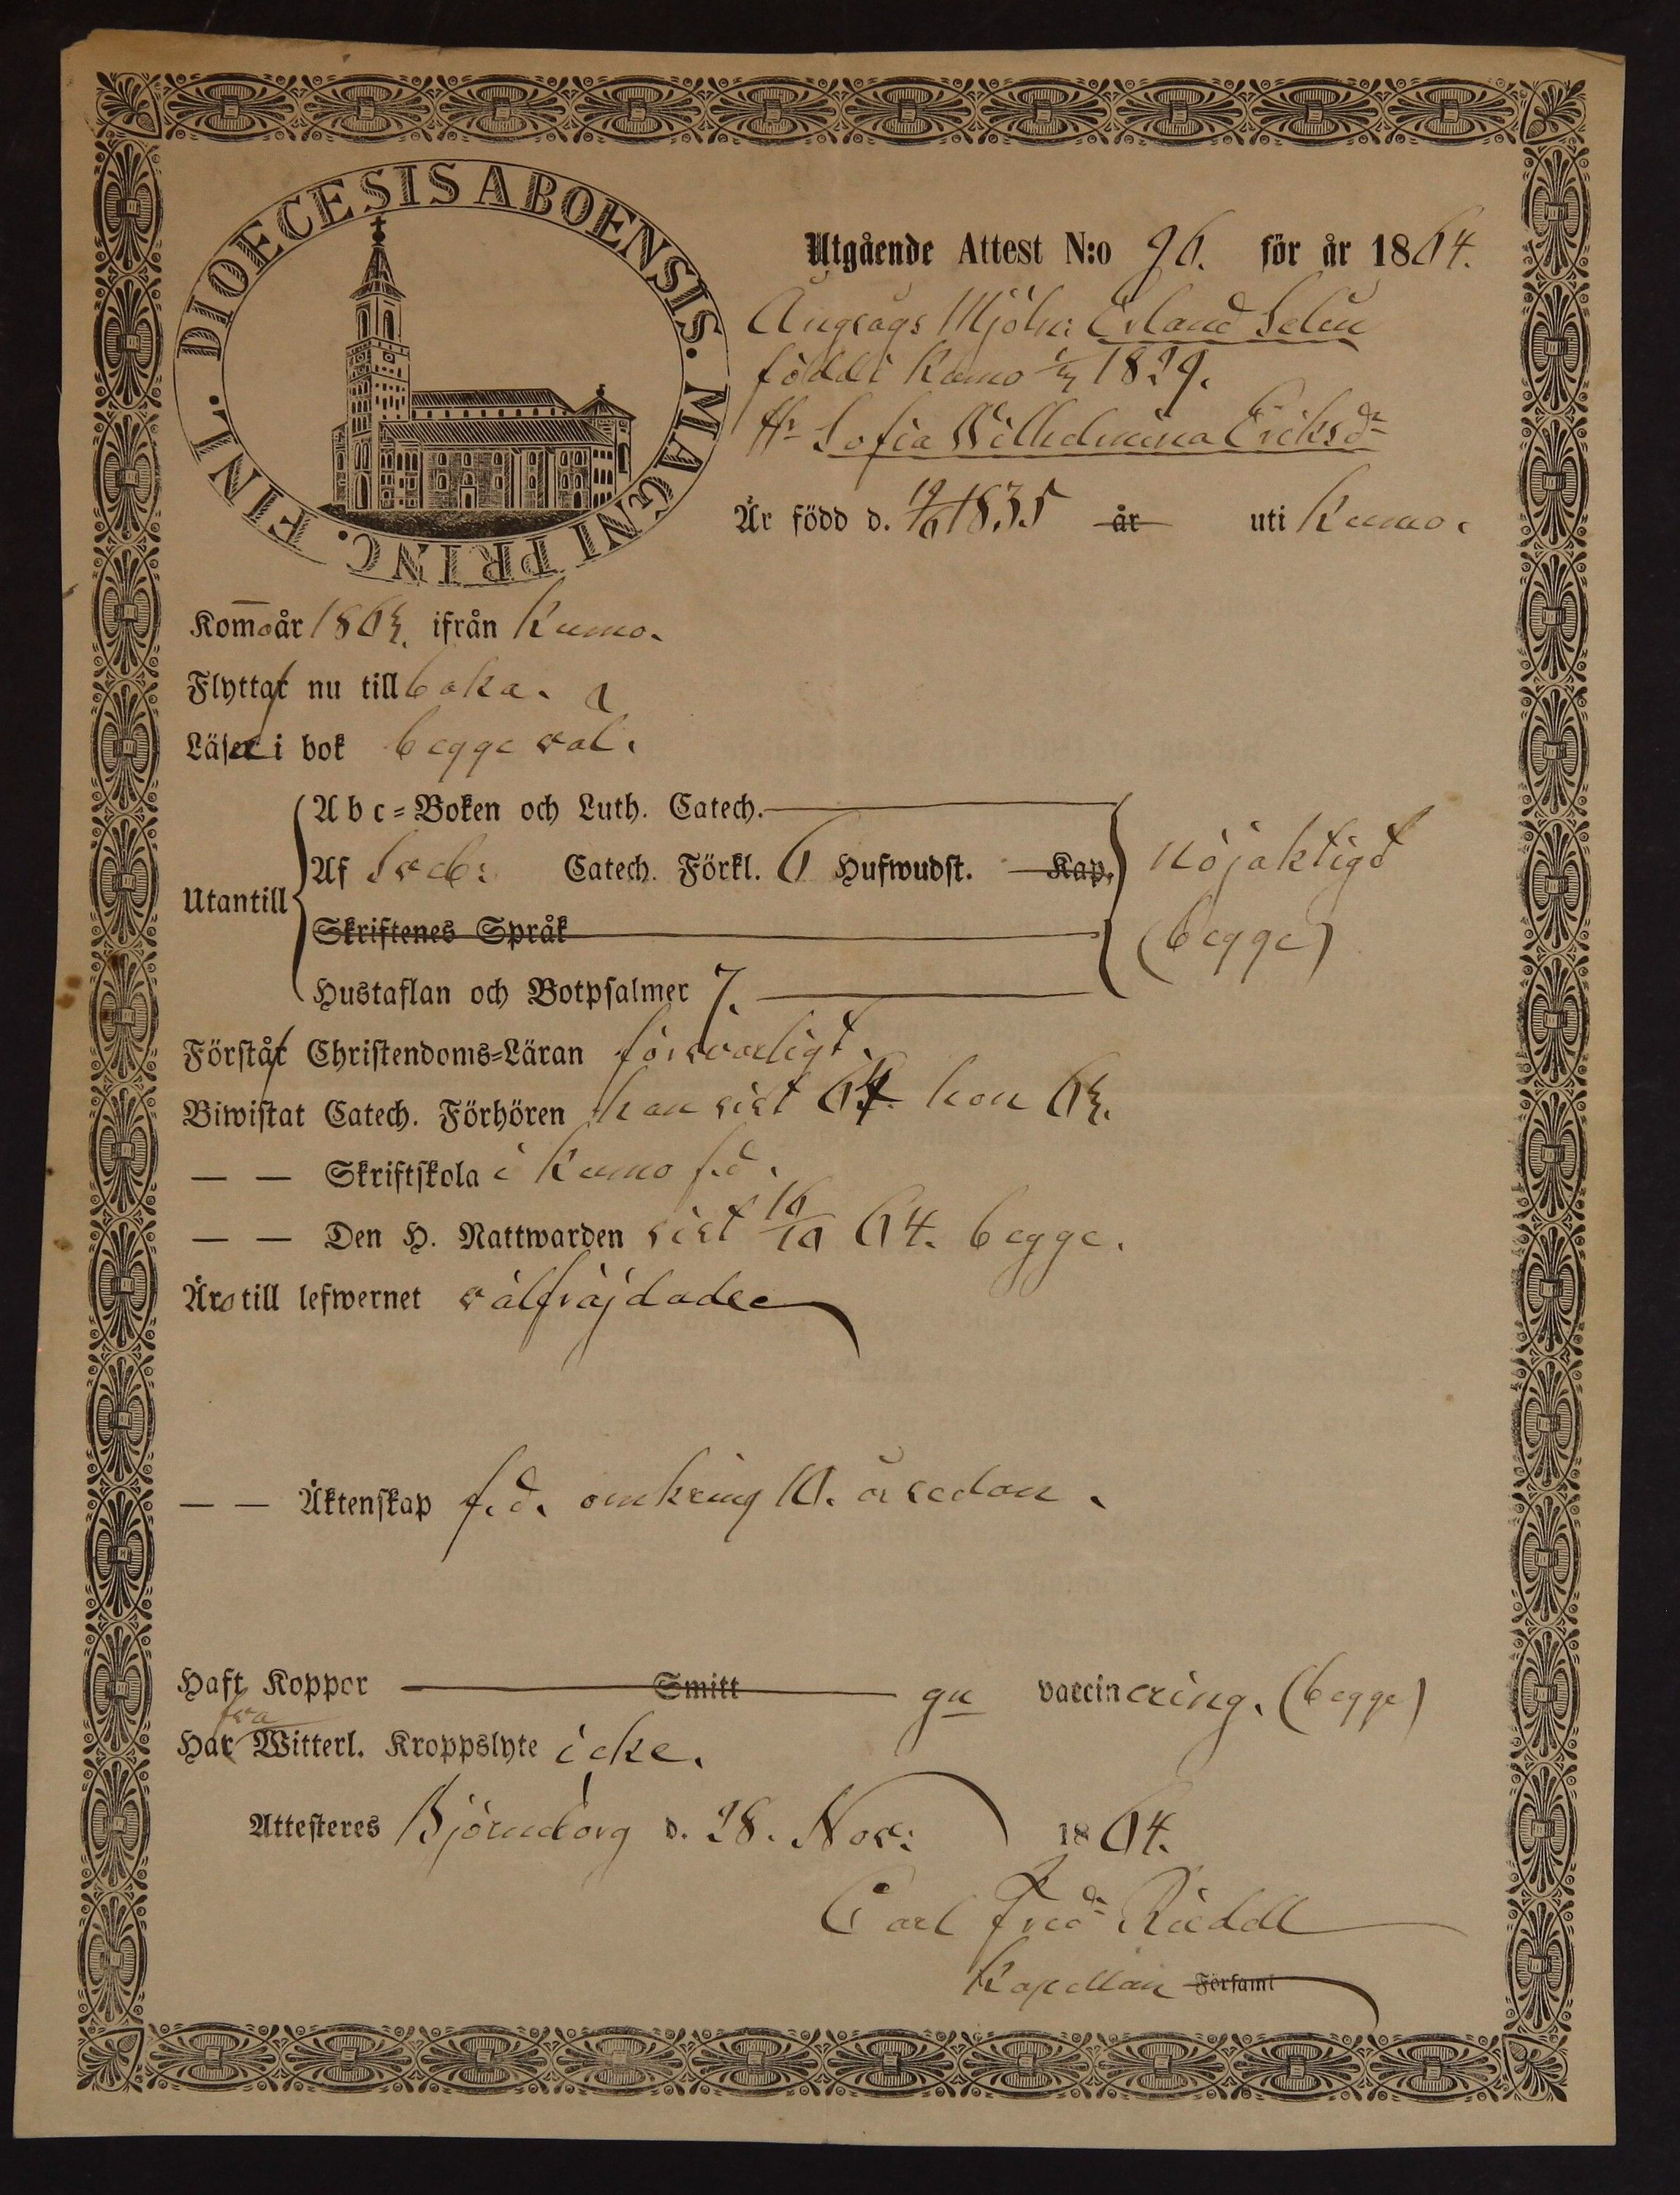 DIOECESIS ABOENSIS. MAGNI PRINC. FINL.
Utgående Attest N:o 96. för år 1864.
Ångsågs Mjöln: Erland Selin
född i Kumo 1829.
Hu Sofia Wilhelmina Eriksdr
Är född d. 19/6 1835 år uti Kumo.
Komo år 1863. ifrån Kumo.
Flyttat nu till baka.
Läser i bok begge väl.
Utantill
Abc-Boken och Luth. Catech.
Af Sveb: Catech. Förkl. 6 Hufwudst. Kap.
nöjaktigt
Skriftenes Språk
(begge)
Hustaflan och Botpsalmer 7.
Förstår Christendoms-Läran försvarligt.
Biwistat Catech. Förhören han sist 64. hon 63.
— — Skriftskola i Kumo f.d.
— — Den H. Nattwarden sist 16/10 64. begge.
Äro till lefwernet välfräjdade
— — Äktenskap f.d. omkring 10. år sedan.
Haft Koppor Smitt gn vaccinering. (begge)
Hafva Witterl. Kroppslyte icke.
Attesteres Björneborg d. 28. Nov: 1864.
Carl Fredr Riddell
Kapellan Församl